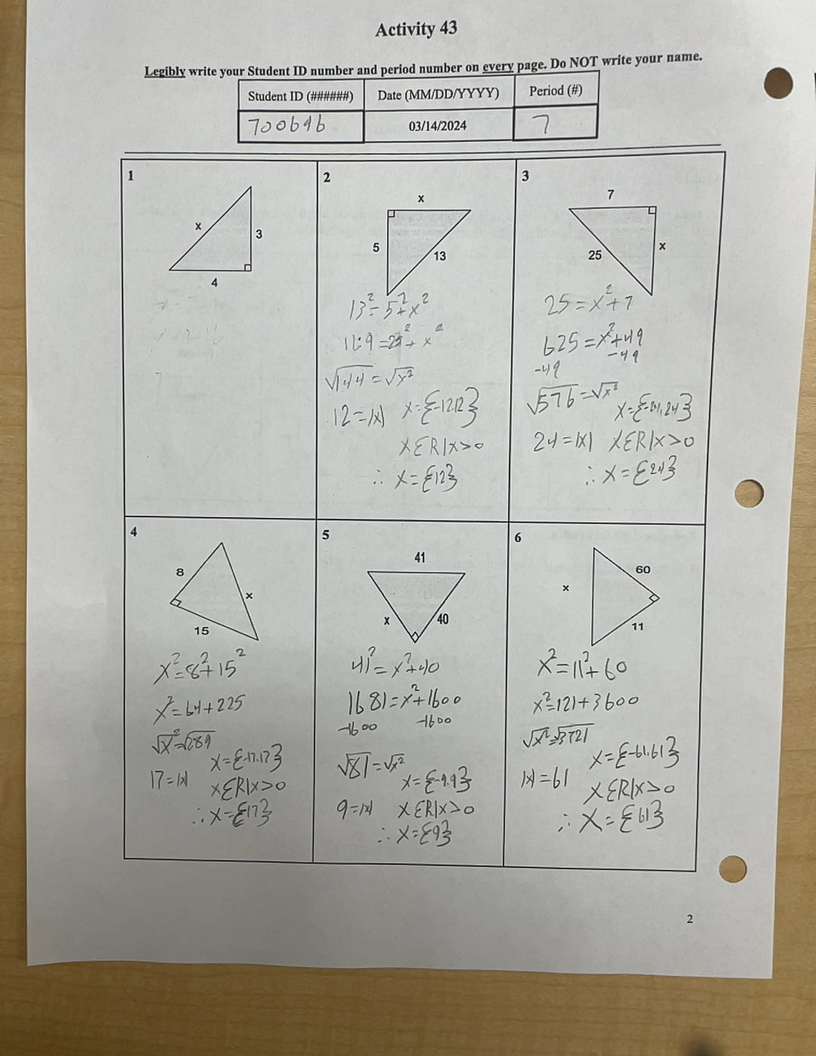 Activity 43
Legibly write your Student ID number and period number on every page. Do NOT write your name.
Student ID (######) Date (MM/DD/YYYY) Period (#)
700696 03/14/2024 7
1
x
3
4
2
x
5
13
13²=5²+x²
169=25+x²
√144=√x²
12=|x| x={-12,12}
xεR|x>0
∴ x={12}
3
7
25
x
25=x²+7
625=x²+49
-49 -49
√576=√x²
x={-24,24}
24=|x| xεR|x>0
∴ x={24}
4
8
x
15
x²=8²+15²
x²=64+225
√x²=√289
x={-17,17}
17=|x| xεR|x>0
∴ x={17}
5
41
x
40
41²=x²+40
1681=x²+1600
-1600 -1600
√81=√x²
x={-9,9}
9=|x| xεR|x>0
∴ x={9}
6
60
x
11
x²=11²+60
x²=121+3600
√x²=√3721
x={-61,61}
|x|=61
xεR|x>0
∴ x={61}
2